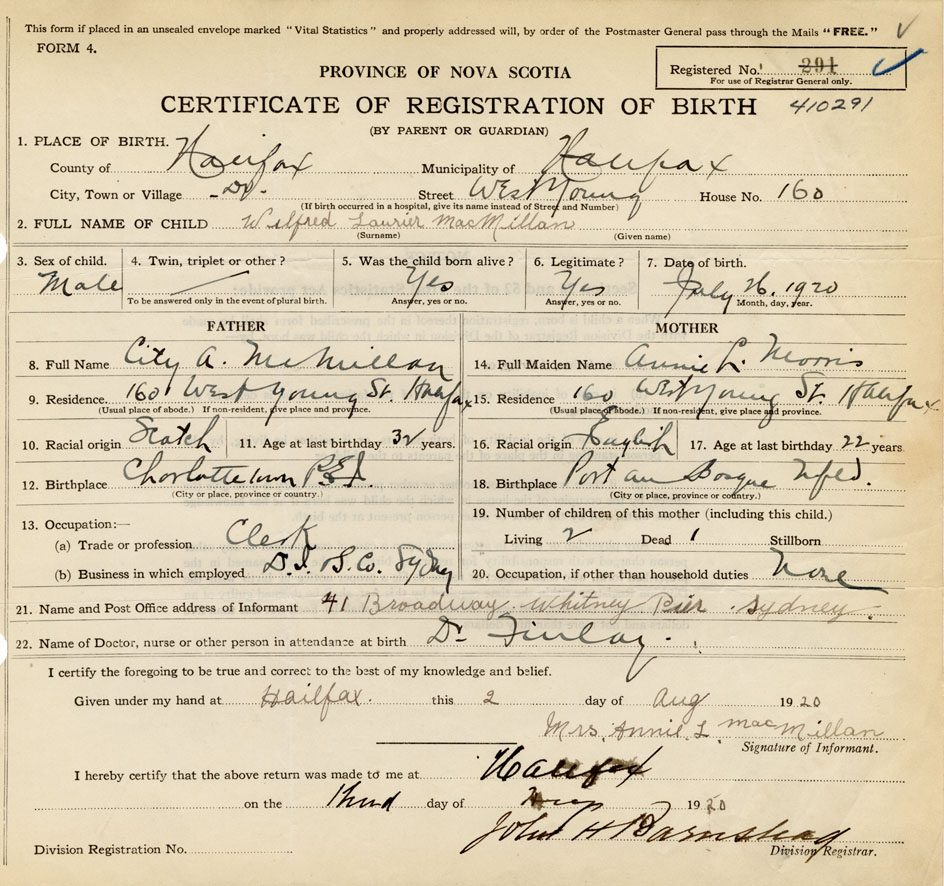 This form if placed in an unsealed envelope marked "Vital Statistics" and properly addressed will, by order of the Postmaster General pass through the Mails "FREE."
FORM 4.
Registered No. 291
For use of Registrar General only.
PROVINCE OF NOVA SCOTIA
CERTIFICATE OF REGISTRATION OF BIRTH 410291
(BY PARENT OR GUARDIAN)
1. PLACE OF BIRTH.
County of Halifax Municipality of Halifax
City, Town or Village Do. Street West Young House No. 160
(If birth occurred in a hospital, give its name instead of Street and Number)
2. FULL NAME OF CHILD Wilfred Laurier MacMillan
(Surname) (Given name)
3. Sex of child. 4. Twin, triplet or other? 5. Was the child born alive? 6. Legitimate? 7. Date of birth.
Male Yes Yes July 26, 1920
To be answered only in the event of plural birth. Answer, yes or no. Answer, yes or no. Month, day, year.
FATHER MOTHER
8. Full Name A. McMillan 14. Full Maiden Name Annie L. Morris
9. Residence 160 West Young St. Halifax 15. Residence 160 West Young St. Halifax
(Usual place of abode.) If non-resident, give place and province. (Usual place of abode.) If non-resident, give place and province.
10. Racial origin Scotch 11. Age at last birthday 32 years. 16. Racial origin English 17. Age at last birthday 22 years
12. Birthplace Charlottetown P.E.I. 18. Birthplace Port au Basque Nfld.
(City or place, province or country.) (City or place, province or country.)
13. Occupation:— 19. Number of children of this mother (including this child.)
(a) Trade or profession Clerk Living 2 Dead 1 Stillborn
(b) Business in which employed D.I. & S. Co. Sydney 20. Occupation, if other than household duties None
21. Name and Post Office address of Informant 41 Broadway Whitney Pier Sydney
22. Name of Doctor, nurse or other person in attendance at birth Dr Finlay.
I certify the foregoing to be true and correct to the best of my knowledge and belief.
Given under my hand at Hailfax. this 2 day of Aug 1920
Mrs. Annie L. MacMillan
Signature of Informant.
I hereby certify that the above return was made to me at Halifax
on the third day of 1920
John H Barnstead
Division Registration No. Division Registrar.